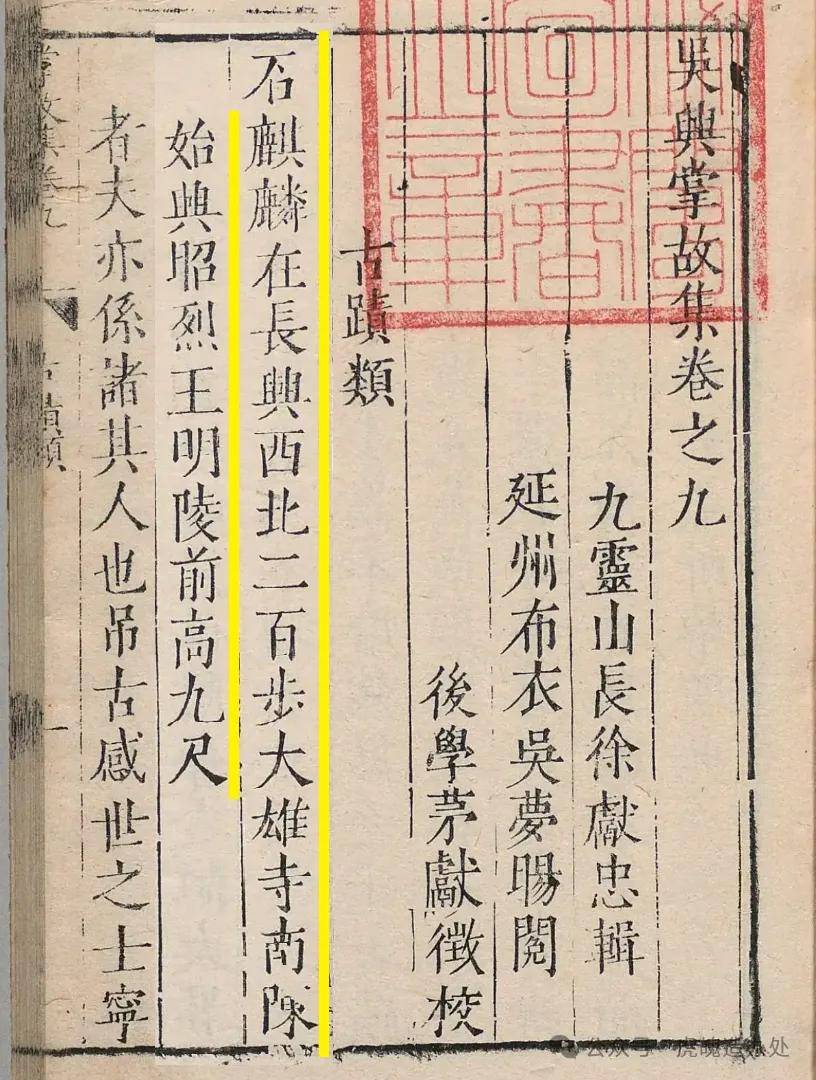 吳興掌故集卷之九
九靈山長徐獻忠輯
延州布衣吳夢暘閱
後學茅獻徵校
古蹟類
石麒麟在長興西北二百步大雄寺南陳
始興昭烈王明陵前高九尺
者夫亦係諸其人也吊古感世之士寧
掌故集卷九
古蹟類
一
公众号·虎魄造办处